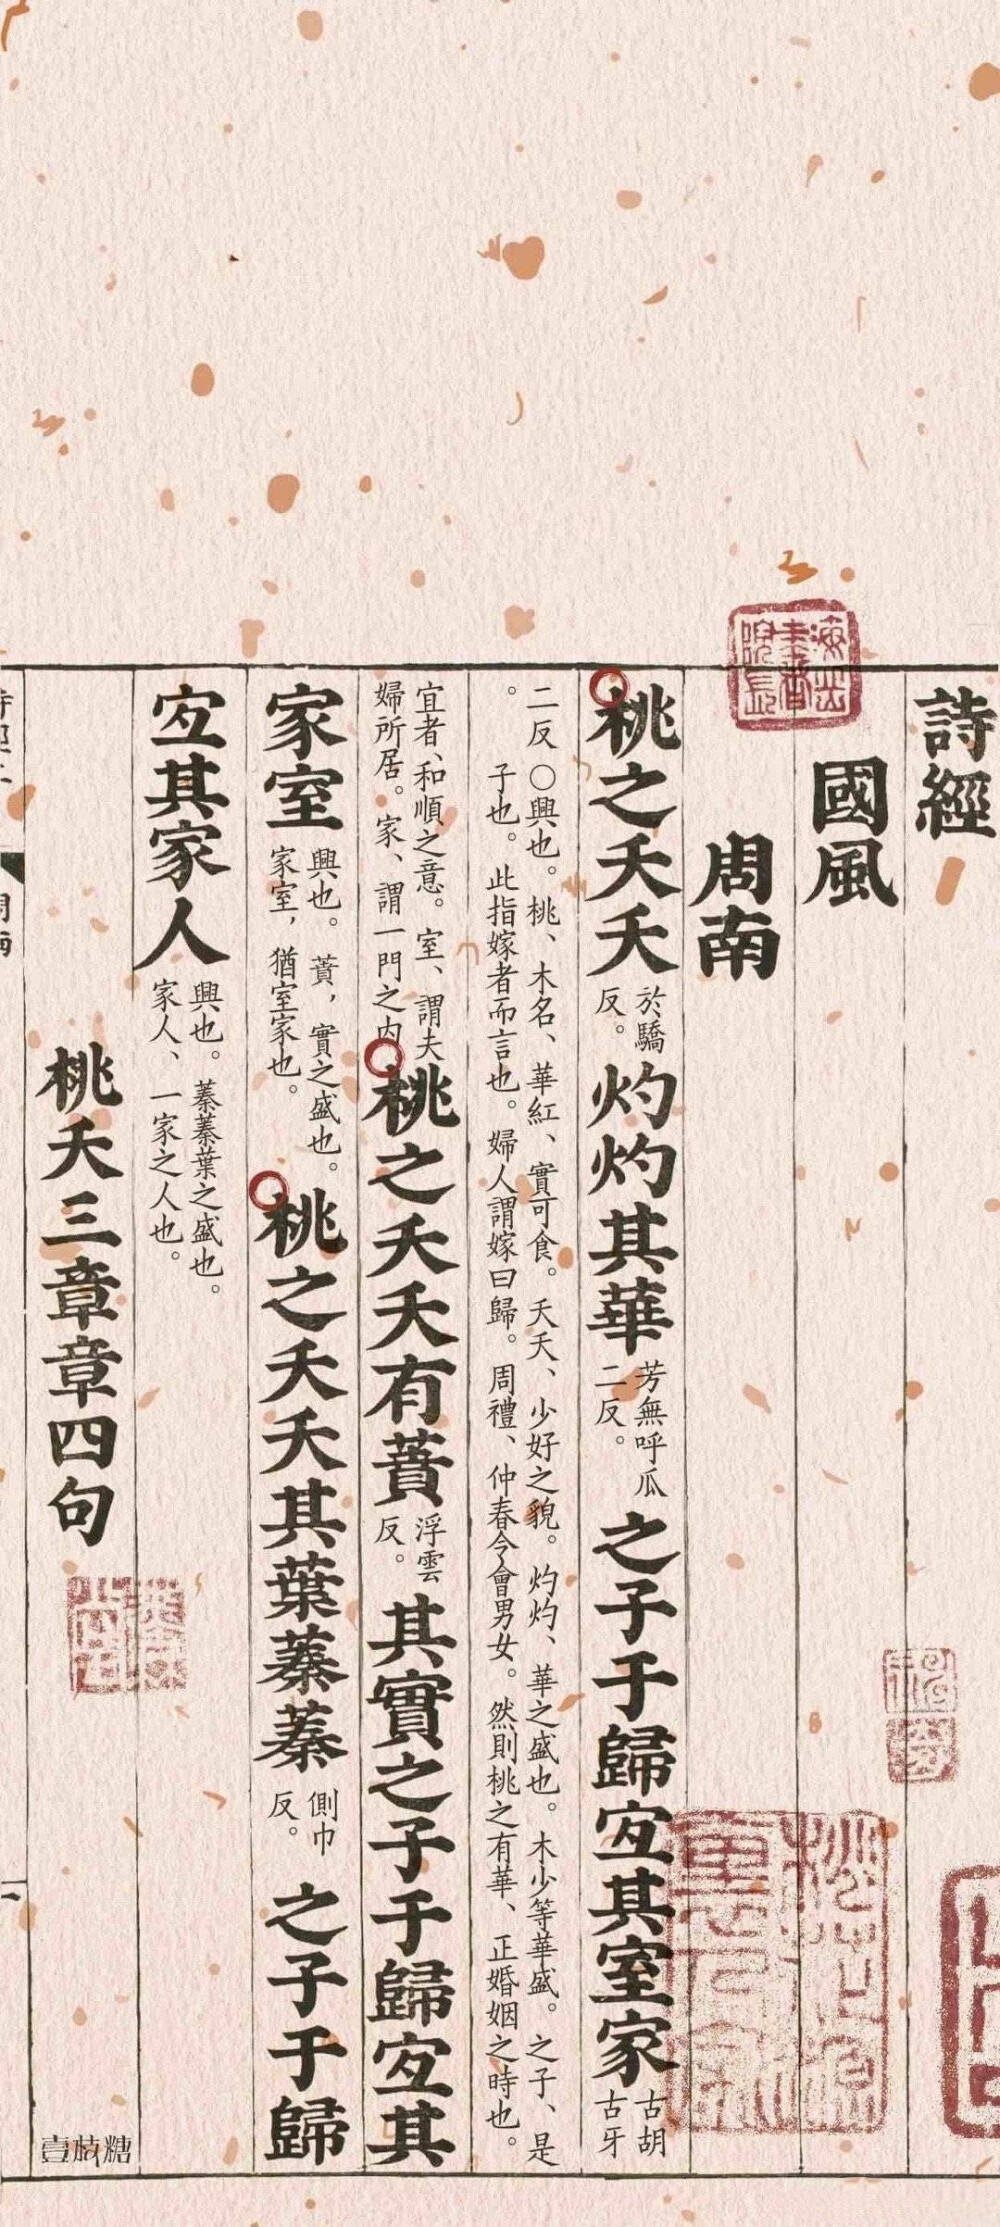 詩經
國風
周南
桃之夭夭於驕反。灼灼其華芳無呼瓜二反。之子于歸宜其室家古胡古牙
二反〇興也。桃、木名、華紅、實可食。夭夭、少好之貌。灼灼、華之盛也。木少等華盛。之子、是
。子也。此指嫁者而言也。婦人謂嫁曰歸。周禮、仲春令會男女。然則桃之有華、正婚姻之時也。
宜者、和順之意。室、謂夫
婦所居。家、謂一門之内
桃之夭夭有蕡浮雲反。其實之子于歸宜其
家室興也。蕡，實之盛也。家室，猶室家也。桃之夭夭其葉蓁蓁側巾反。之子于歸
宜其家人興也。蓁蓁葉之盛也。家人、一家之人也。
桃夭三章章四句
壹枝糖